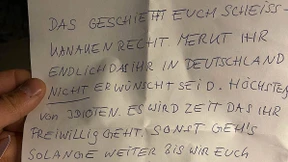 DAS GESCHIEHT EUCH SCHEISS-
KANAKEN RECHT. MERKT IHR
ENDLICH DAS IHR IN DEUTSCHLAND
NICHT ERWÜNSCHT SEID. HÖCHSTENS
VON IDIOTEN. ES WIRD ZEIT DAS IHR
FREIWILLIG GEHT, SONST GEH'S
SOLANGE WEITER BIS WIR EUCH